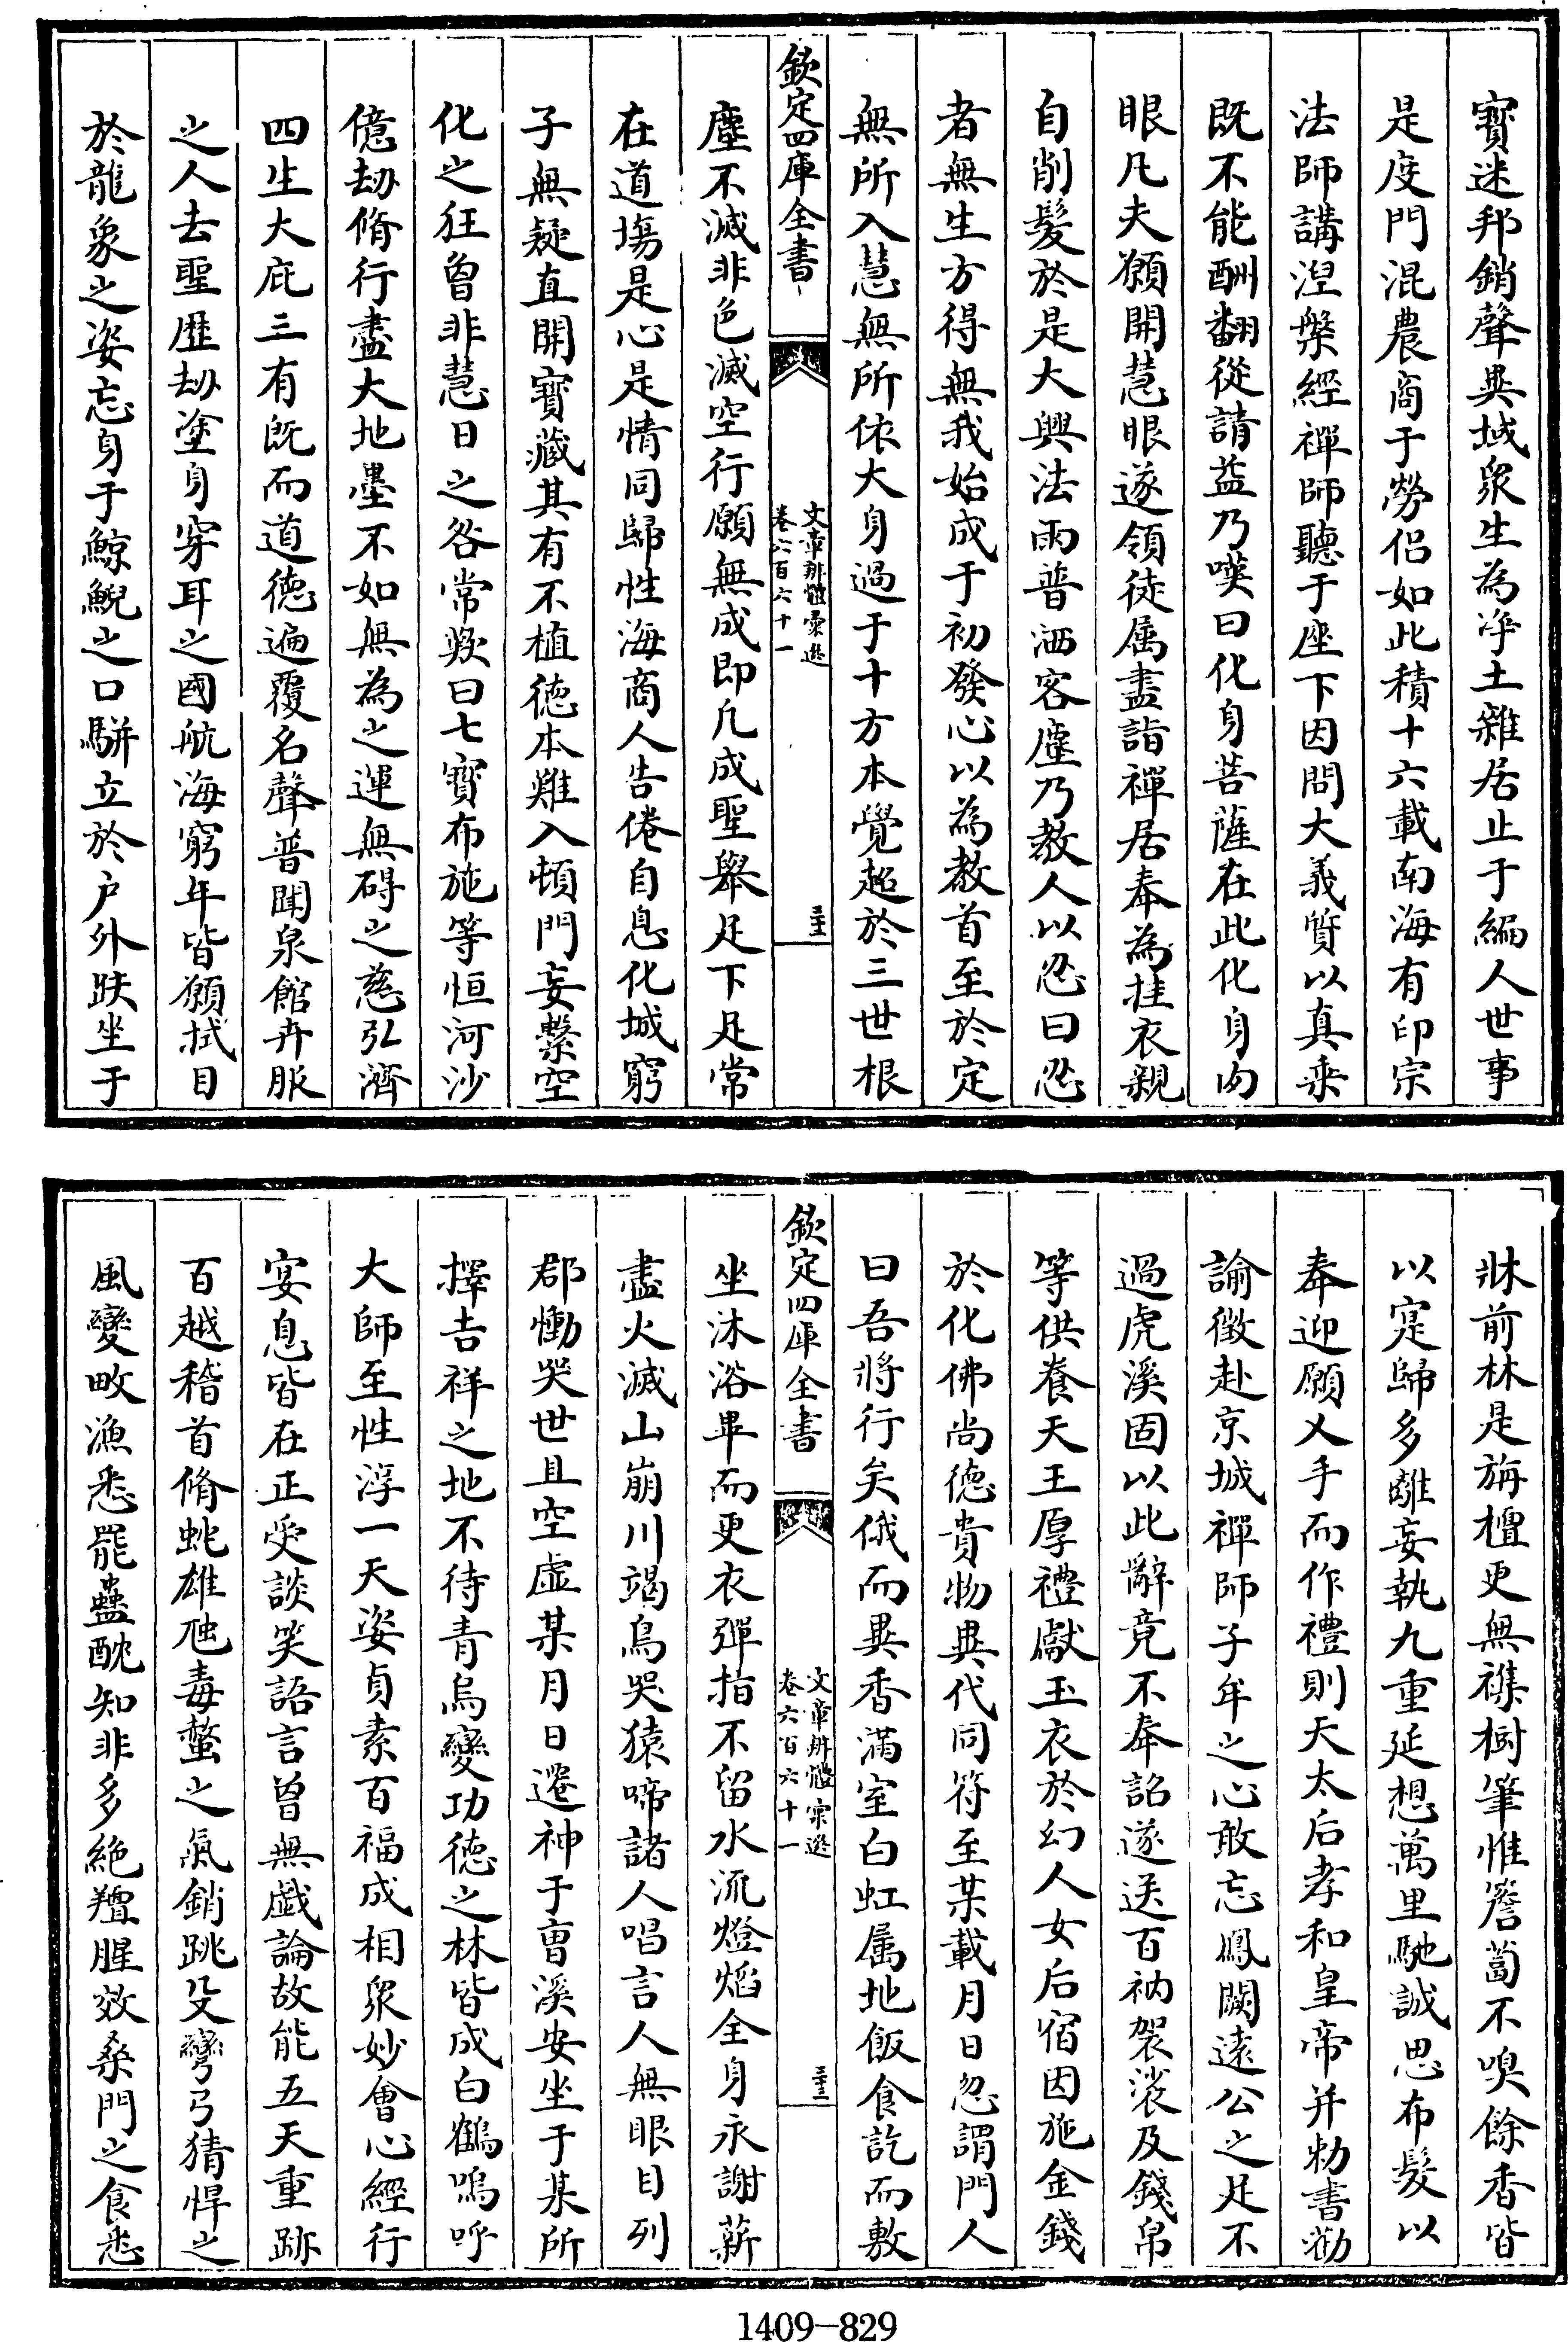 寳迷邦銷聲異域衆生為淨土雜居止于編人世事
是度門混農商于勞侣如此積十六載南海有印宗
法師講涅槃經禪師聽于座下因問大義質以真乗
既不能酬翻從請益乃嘆曰化身菩薩在此化身肉
眼凡夫願開慧眼遂領徒属盡詣禪居奉為挂衣親
自削髮於是大興法雨普洒客塵乃教人以忍曰忍
者無生方得無我始成于初發心以為教首至於定
無所入慧無所依大身過于十方本覺超於三世根
欽定四庫全書
文章辨體彙選
卷六百六十一
塵不滅非色滅空行願無成即凡成聖舉足下足常
在道塲是心是情同歸性海商人告倦自息化城窮
子無疑直開寳藏其有不植徳本難入頓門妄繫空
化之狂曽非慧日之咎常歎曰七寳布施等恒河沙
億劫脩行盡大地墨不如無為之運無碍之慈弘濟
四生大庇三有既而道徳遍覆名聲普聞泉館卉服
之人去聖歴劫塗身穿耳之國航海窮年皆願拭目
於龍象之姿忘身于鯨鯢之口駢立於户外趺坐于
牀前林是旃檀更無襍樹筆惟簷蔔不嗅餘香皆
以寔歸多離妄執九重延想萬里馳誠思布髮以
奉迎願乂手而作禮則天太后孝和皇帝并勅書勸
諭徴赴京城禪師子牟之心敢忘鳳闕遠公之足不
過虎溪固以此辭竟不奉詔遂送百衲袈裟及錢帛
等供養天王厚禮獻玉衣於幻人女后宿因施金錢
於化佛尚徳貴物異代同符至某載月日忽謂門人
曰吾將行矣俄而異香滿室白虹属地飯食訖而敷
欽定四庫全書
文章辨體彙選
卷六百六十一
坐沐浴畢而更衣彈指不留水流燈焰全身永謝薪
盡火滅山崩川竭鳥哭猿啼諸人唱言人無眼目列
郡慟哭世且空虚某月日遷神于曹溪安坐于某所
擇吉祥之地不待青烏變功徳之林皆成白鶴嗚呼
大師至性淳一天姿貞素百福成相衆妙會心經行
宴息皆在正受談笑語言曽無戯論故能五天重跡
百越稽首脩虵雄虺毒螫之氣銷跳殳彎弓猜悍之
風變畋漁悉罷蠱酖知非多絶羶腥效桑門之食悉
1409-829